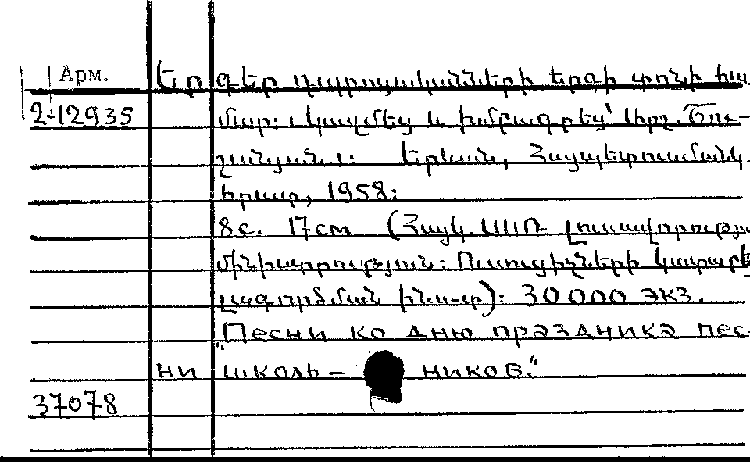 Арм. Երգեր դպրոցականների երգի տոնի հա
2-12935 մար: Կազմեց և խմբագրեց՝ Աիդ. Շու-
շանյան։: Երևան, Հայպետուսմանկ
հրատ, 1958:
8с. 17см (Հայկ. ՍՍՌ լուսավորությա
մինիստրություն: Ուսուցիչների կատարե
լագործման ինս-տ): 30 000 экз.
"Песни ко дню праздника пес
ни школь- ников."
37078